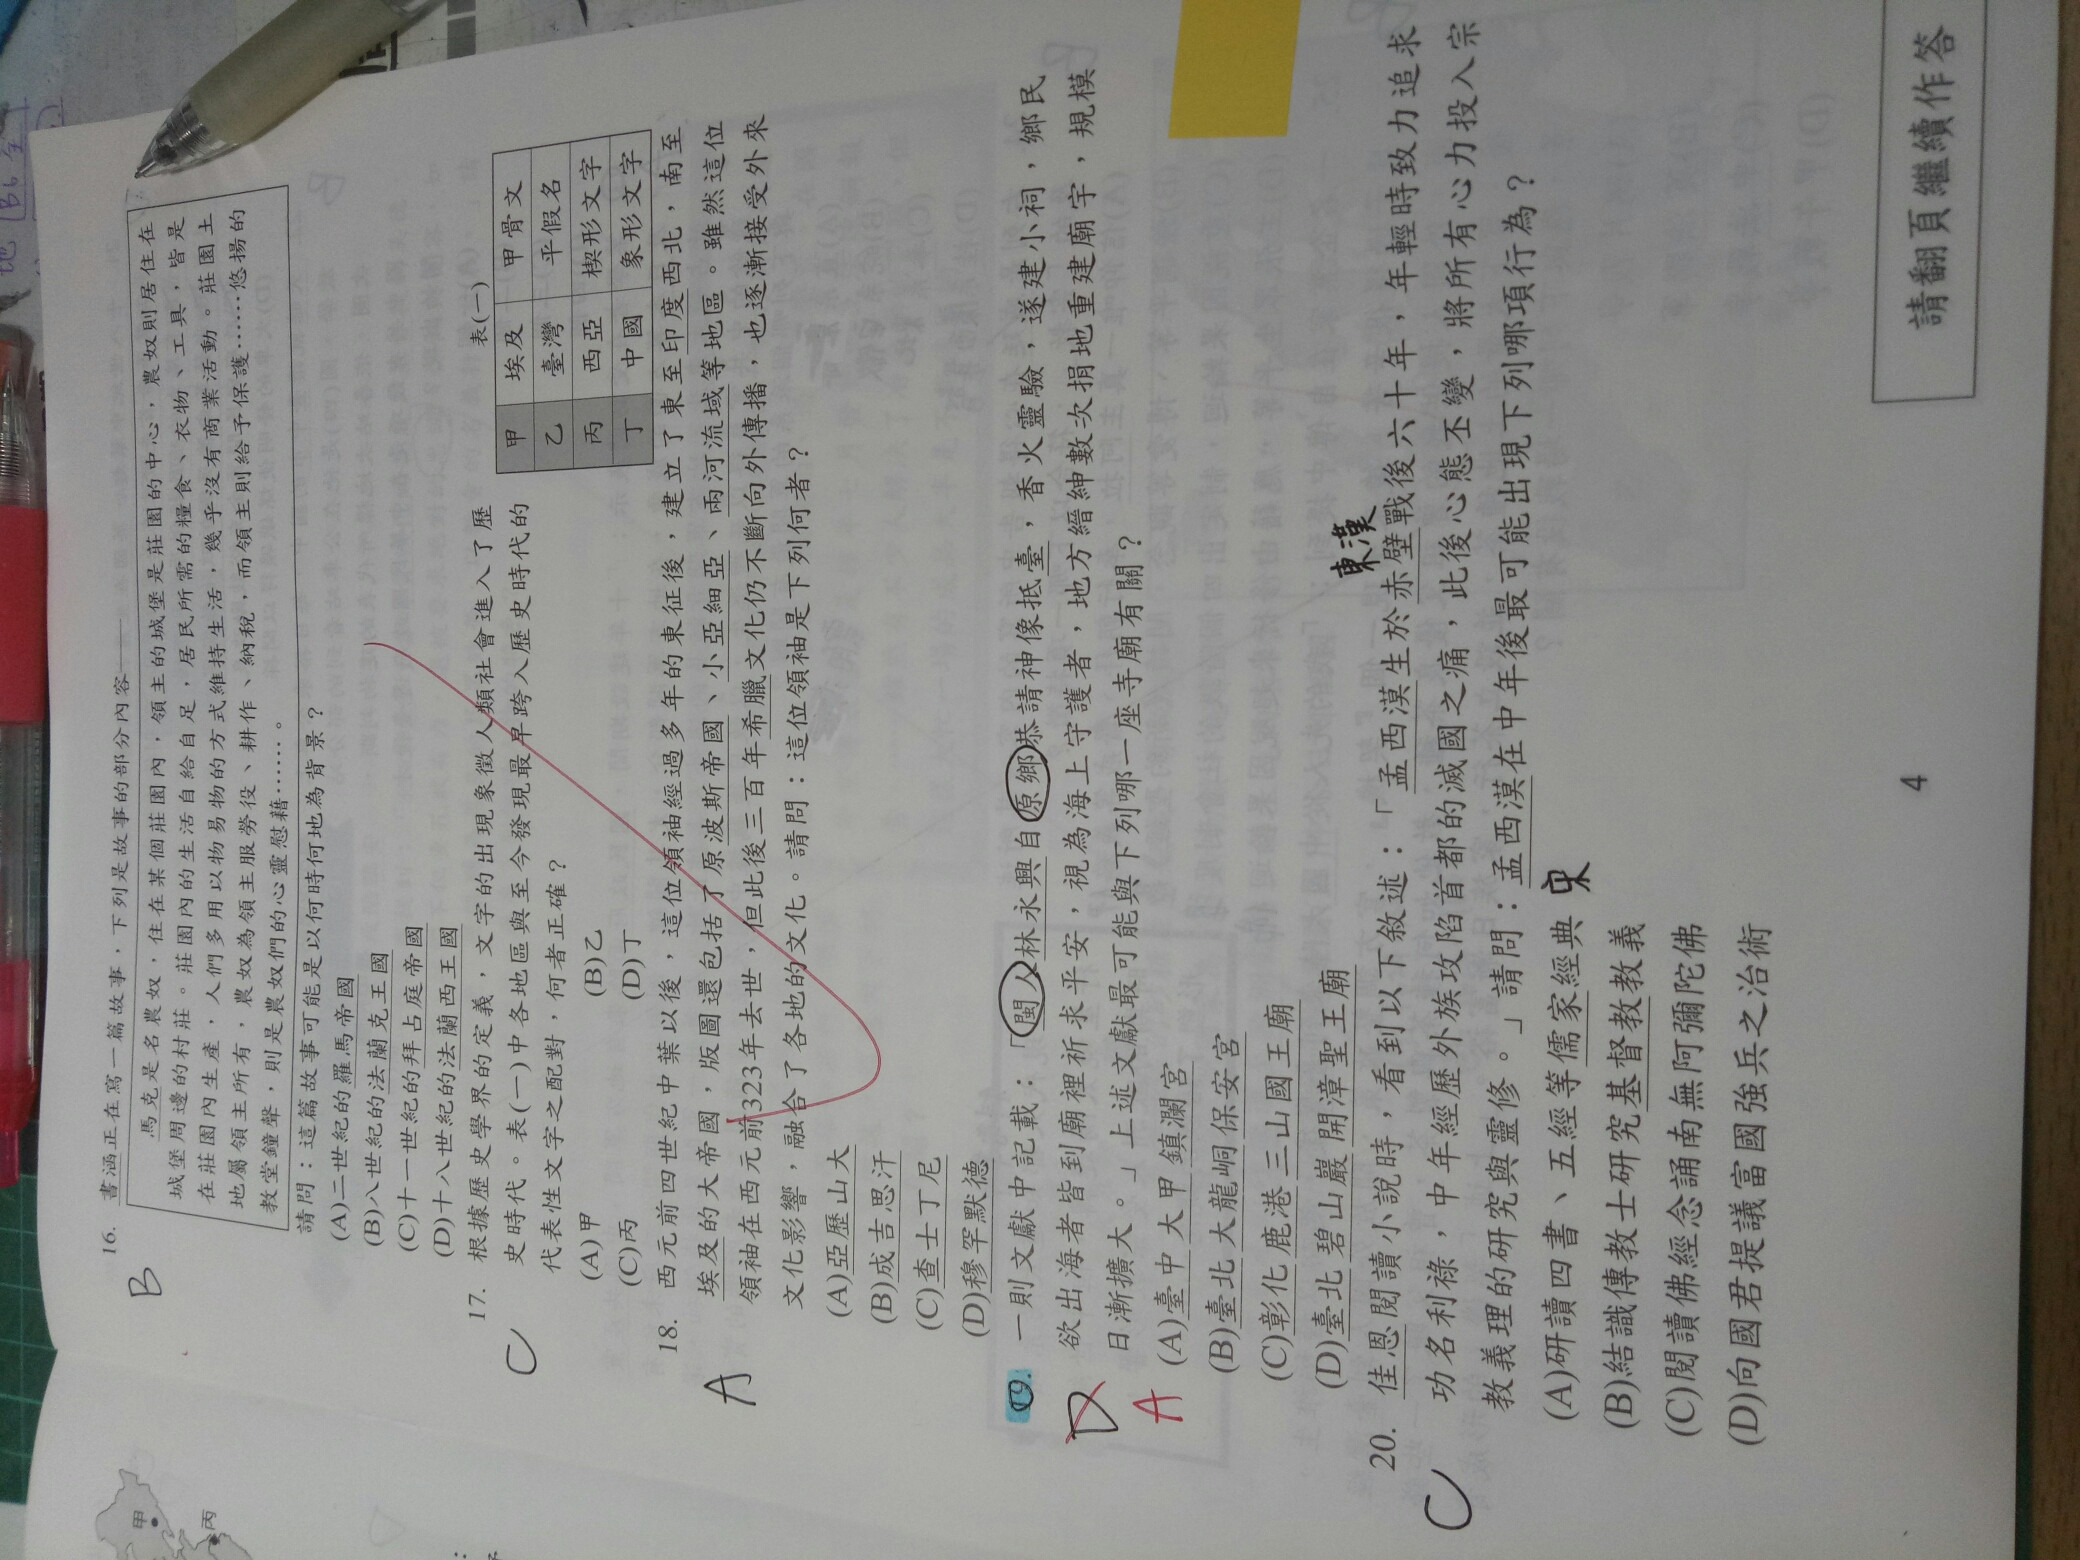 16. 書涵正在寫一篇故事，下列是故事的部分內容—
馬克是名農奴，住在某個莊園內，領主的城堡是莊園的中心，農奴則居住在
城堡周邊的村莊。莊園內的生活自給自足，居民所需的糧食、衣物、工具，皆是
在莊園內生產，人們多用以物易物的方式維持生活，幾乎沒有商業活動。莊園土
地屬領主所有，農奴為領主服勞役、耕作、納稅，而領主則給予保護……悠揚的
教堂鐘聲，則是農奴們的心靈慰藉……。
請問：這篇故事可能是以何時何地為背景？
(A)二世紀的羅馬帝國
(B)八世紀的法蘭克王國
(C)十一世紀的拜占庭帝國
(D)十八世紀的法蘭西王國
B
17. 根據歷史學界的定義，文字的出現象徵人類社會進入了歷
史時代。表(一)中各地區與至今發現最早跨入歷史時代的
代表性文字之配對，何者正確？
(A)甲 (B)乙
(C)丙 (D)丁
C
表(一)
甲 埃及 甲骨文
乙 臺灣 平假名
丙 西亞 楔形文字
丁 中國 象形文字
18. 西元前四世紀中葉以後，這位領袖經過多年的東征後，建立了東至印度西北，南至
埃及的大帝國，版圖還包括了原波斯帝國、小亞細亞、兩河流域等地區。雖然這位
領袖在西元前323年去世，但此後三百年希臘文化仍不斷向外傳播，也逐漸接受外來
文化影響，融合了各地的文化。請問：這位領袖是下列何者？
(A)亞歷山大
(B)成吉思汗
(C)查士丁尼
(D)穆罕默德
A
19. 一則文獻中記載：「閩人林永興自原鄉恭請神像抵臺，香火靈驗，遂建小祠，鄉民
欲出海者皆到廟裡祈求平安，視為海上守護者，地方縉紳數次捐地重建廟宇，規模
日漸擴大。」上述文獻最可能與下列哪一座寺廟有關？
(A)臺中大甲鎮瀾宮
(B)臺北大龍峒保安宮
(C)彰化鹿港三山國王廟
(D)臺北碧山巖開漳聖王廟
D
A
東漢
20. 佳恩閱讀小說時，看到以下敘述：「孟西漠生於赤壁戰後六十年，年輕時致力追求
功名利祿，中年經歷外族攻陷首都的滅國之痛，此後心態丕變，將所有心力投入宗
教義理的研究與靈修。」請問：孟西漠在中年後最可能出現下列哪項行為？
(A)研讀四書、五經等儒家經典 宋
(B)結識傳教士研究基督教教義
(C)閱讀佛經念誦南無阿彌陀佛
(D)向國君提議富國強兵之治術
C
4
請翻頁繼續作答
甲
丙